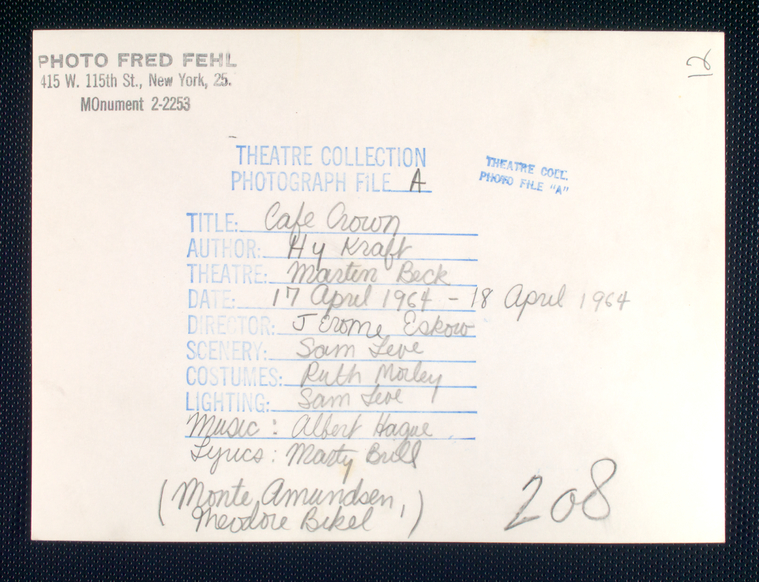 PHOTO FRED FEHL
415 W. 115th St., New York, 25.
MOnument 2-2253
12
THEATRE COLLECTION
PHOTOGRAPH FILE A
THEATRE COLL.
PHOTO FILE "A"
TITLE: Cafe Crown
AUTHOR: Hy Kraft
THEATRE: Martin Beck
DATE: 17 April 1964 - 18 April 1964
DIRECTOR: Jerome Eskow
SCENERY: Sam Leve
COSTUMES: Ruth Morley
LIGHTING: Sam Leve
Music: Albert Hague
Lyrics: Marty Brill
(Monte Amundsen,
Theodore Bikel)
208